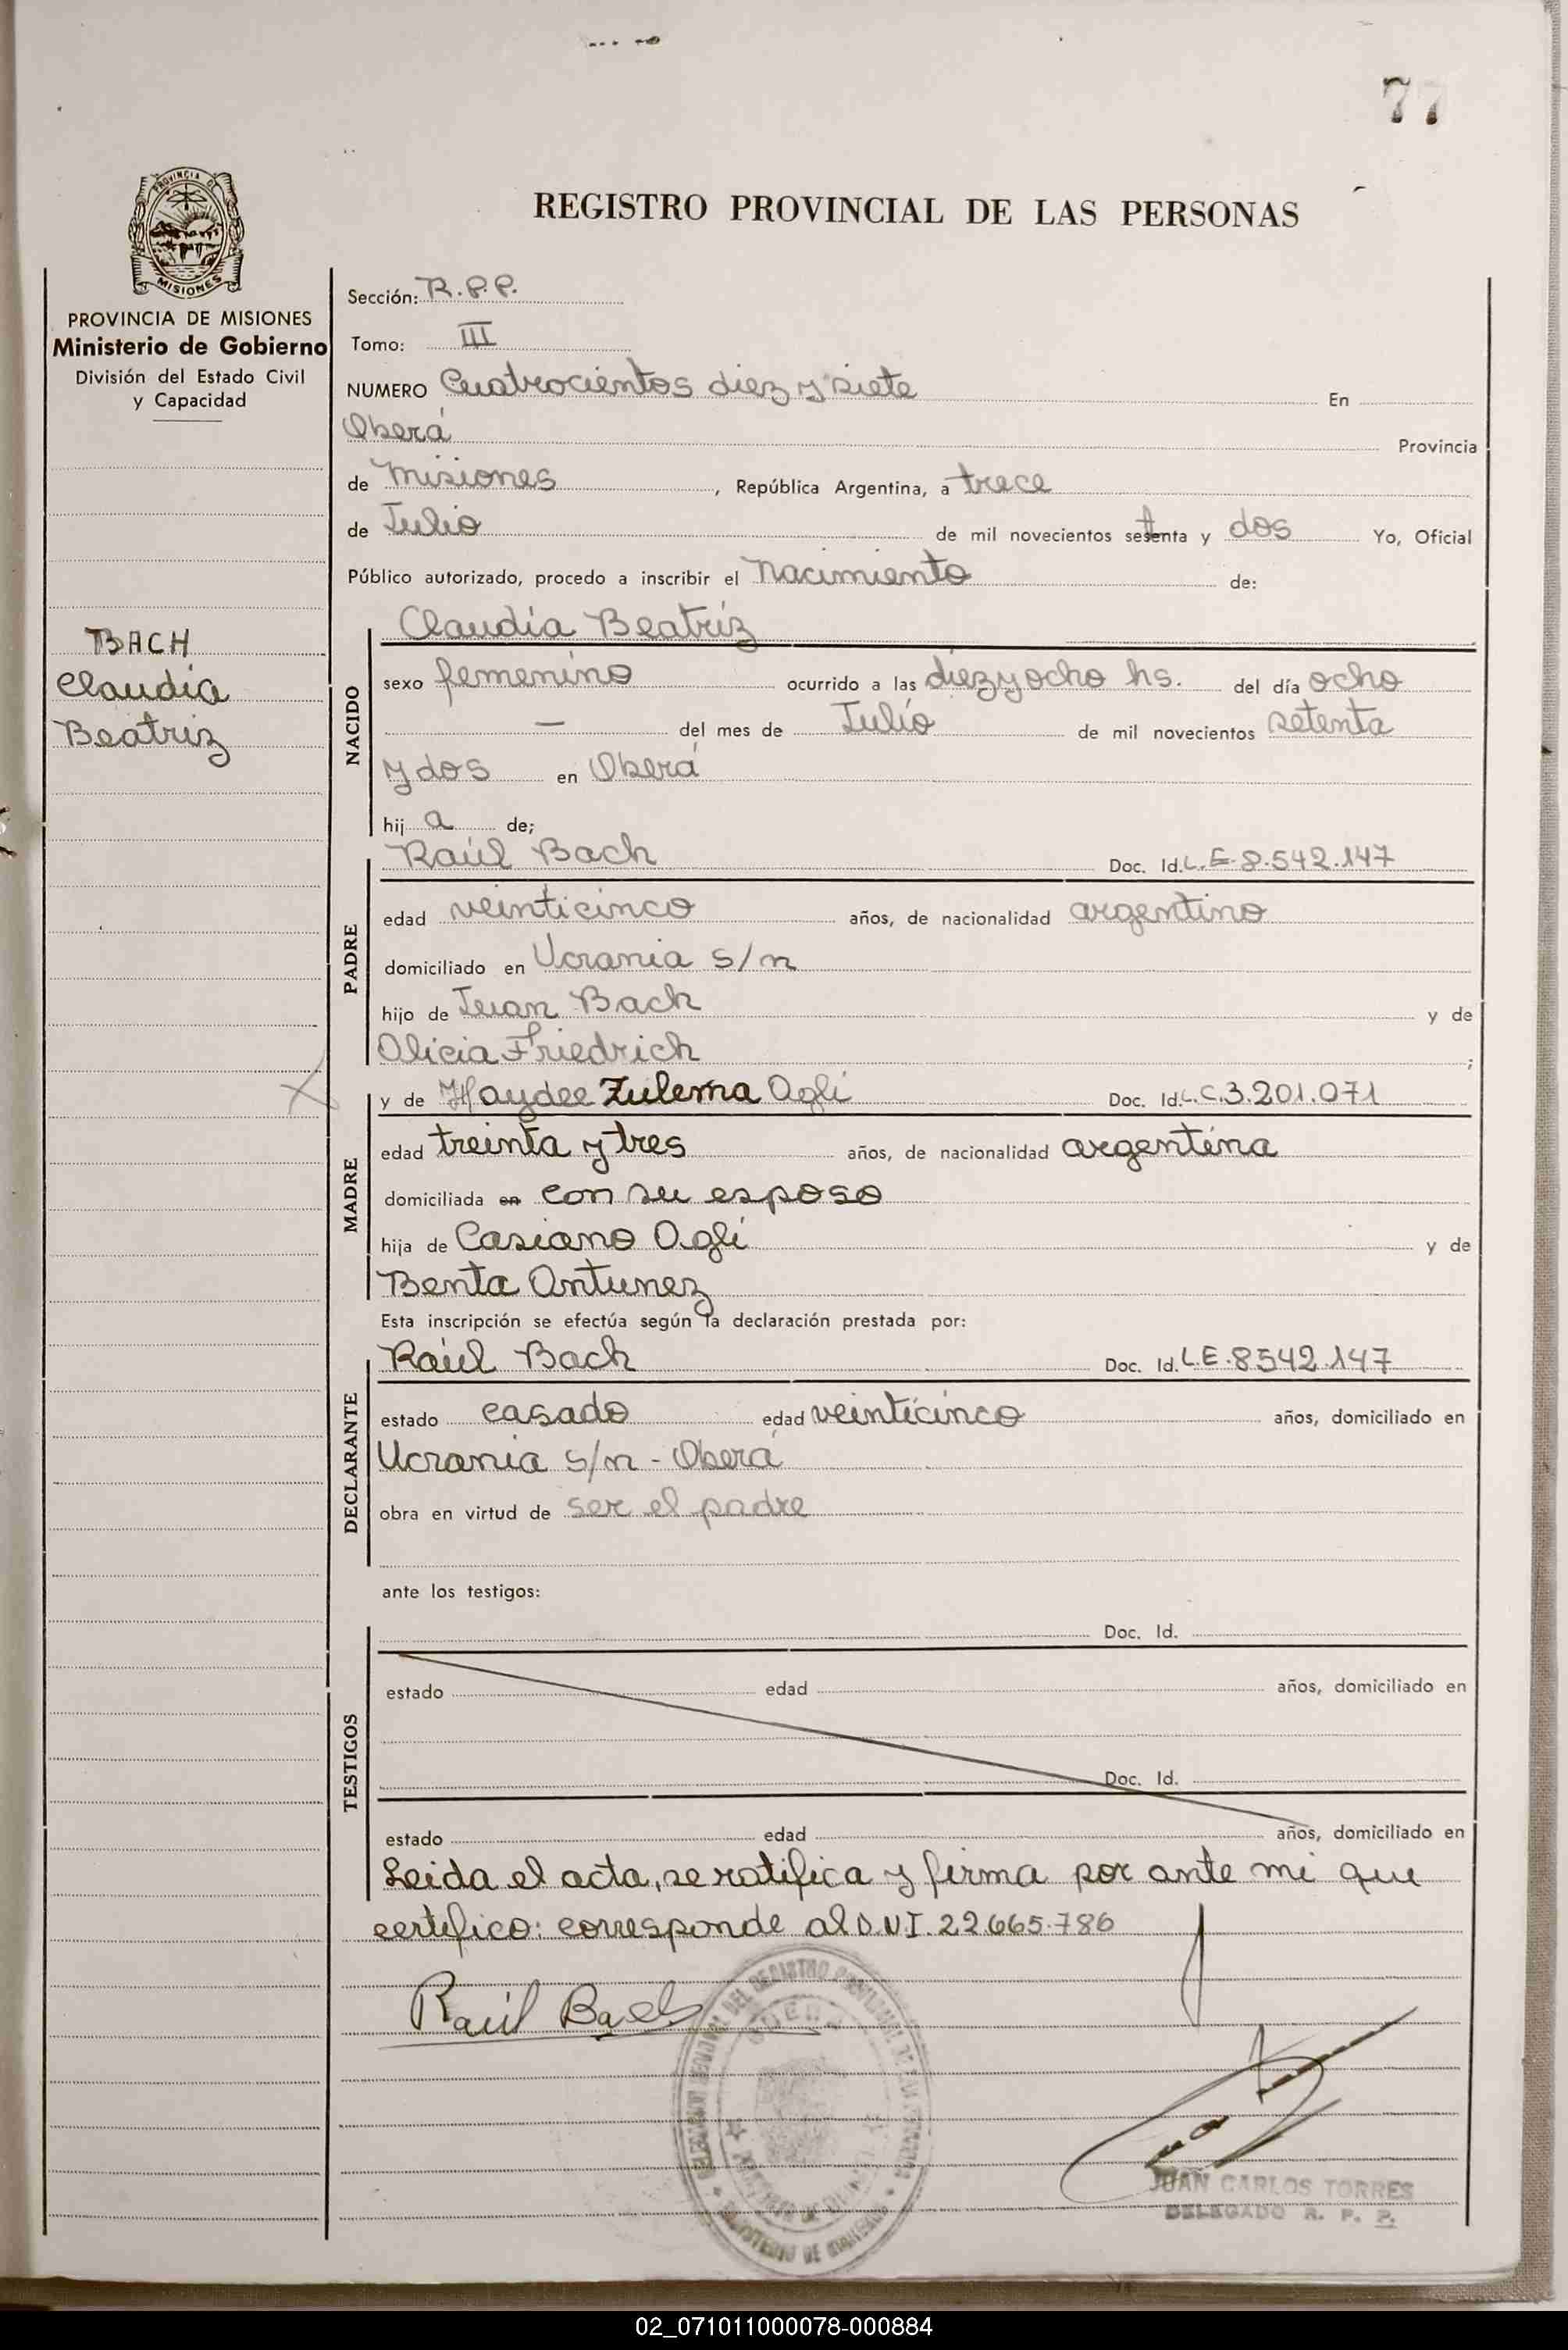 77
PROVINCIA DE
MISIONES
REGISTRO PROVINCIAL DE LAS PERSONAS
PROVINCIA DE MISIONES
Ministerio de Gobierno
División del Estado Civil
y Capacidad
BACH
Claudia
Beatriz
Sección: R.P.P.
Tomo: III
NUMERO Cuatrocientos diez y siete En
Oberá Provincia
de Misiones, República Argentina, a trece
de Julio de mil novecientos setenta y dos Yo, Oficial
Público autorizado, procedo a inscribir el Nacimiento de:
NACIDO
Claudia Beatriz
sexo femenino ocurrido a las diez y ocho hs. del día ocho
— del mes de Julio de mil novecientos setenta
y dos en Oberá
hij a de;
PADRE
Raúl Bach Doc. Id. L.E. 8.542.147
edad veinticinco años, de nacionalidad argentino
domiciliado en Ucrania s/n
hijo de Juan Bach y de
Alicia Friedrich ;
MADRE
y de Haydee Zulema Agli Doc. Id. L.C. 3.201.071
edad treinta y tres años, de nacionalidad argentina
domiciliada en con su esposo
hija de Casiano Agli y de
Benta Antunez
Esta inscripción se efectúa según la declaración prestada por:
DECLARANTE
Raúl Bach Doc. Id. L.E. 8542.147
estado casado edad veinticinco años, domiciliado en
Ucrania s/n - Oberá
obra en virtud de ser el padre
ante los testigos:
TESTIGOS
Doc. Id.
estado edad años, domiciliado en
Doc. Id.
estado edad años, domiciliado en
Leida el acta, se ratifica y firma por ante mi que
certifico: corresponde al D.N.I. 22.665.786
Raúl Bach
JUAN CARLOS TORRES
DELEGADO R. P. P.
02_071011000078-000884